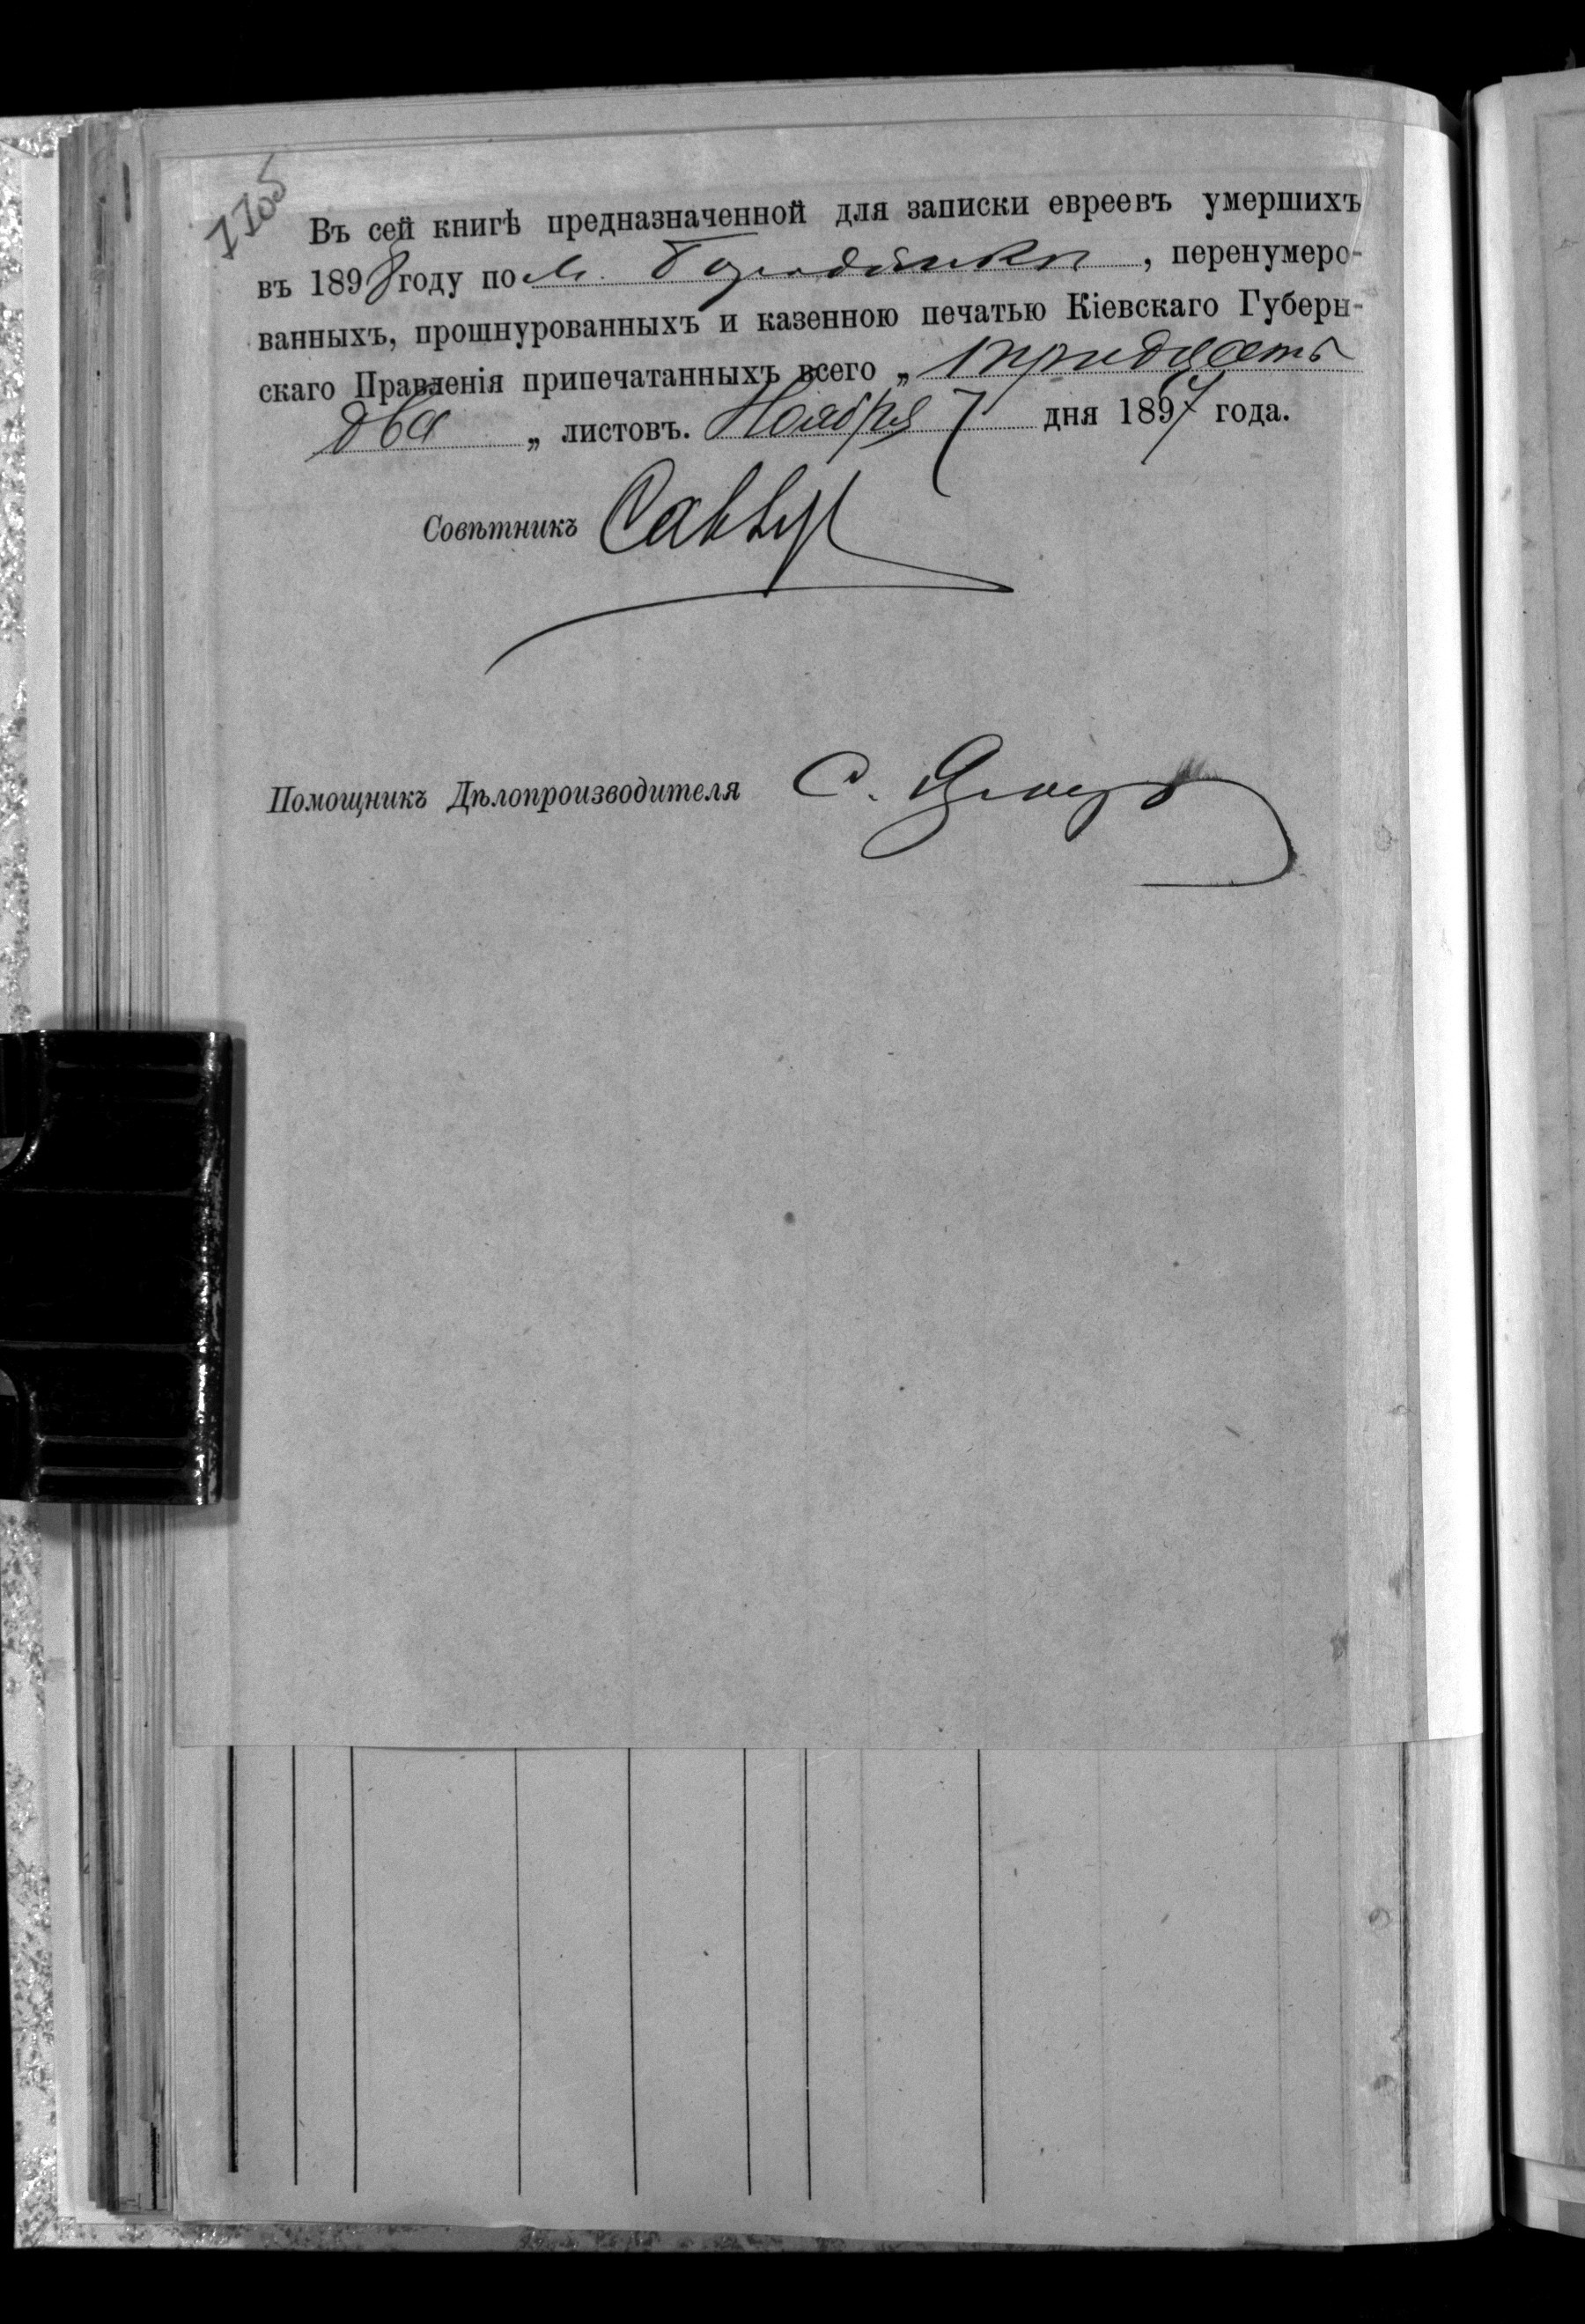 1105
Въ сей книгѣ предназначенной для записки евреевъ умершихъ
въ 1898 году по м. Бородянки, перенумеро-
ванныхъ, прошнурованныхъ и казенною печатью Кіевскаго Губерн-
скаго Правленія припечатанныхъ всего „ тридцать
два „ листовъ. Ноября 7 дня 1897 года.
Совѣтникъ
Помощникъ Дѣлопроизводителя С.